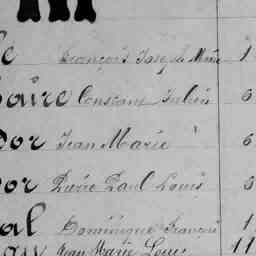 e François Joseph Marie 1
aire Constant Julien 6
dor Jean Marie 6
or Pierre Paul Louis 6
al Dominique François 1
an Jean Marie Louis 11